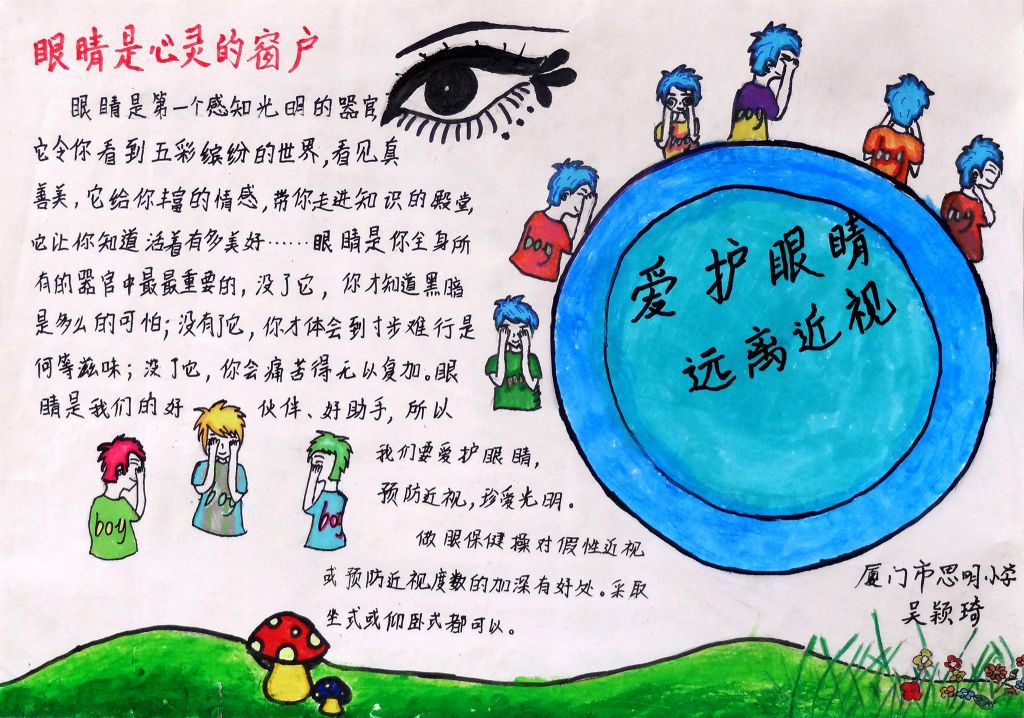 眼睛是心灵的窗户
眼睛是第一个感知光明的器官
它令你看到五彩缤纷的世界,看见真
善美,它给你丰富的情感,带你走进知识的殿堂,
它让你知道活着有多美好……眼睛是你全身所
有的器官中最最重要的,没了它,你才知道黑暗
是多么的可怕;没有了它,你才体会到寸步难行是
何等滋味;没了它,你会痛苦得无以复加。眼
睛是我们的好伙伴、好助手,所以
我们要爱护眼睛,
预防近视,珍爱光明。
做眼保健操对假性近视
或预防近视度数的加深有好处。采取
坐式或仰卧式都可以。
boy
boy
boy
boy
boy
boy
boy
boy
爱护眼睛
远离近视
厦门市思明小学
吴颖琦